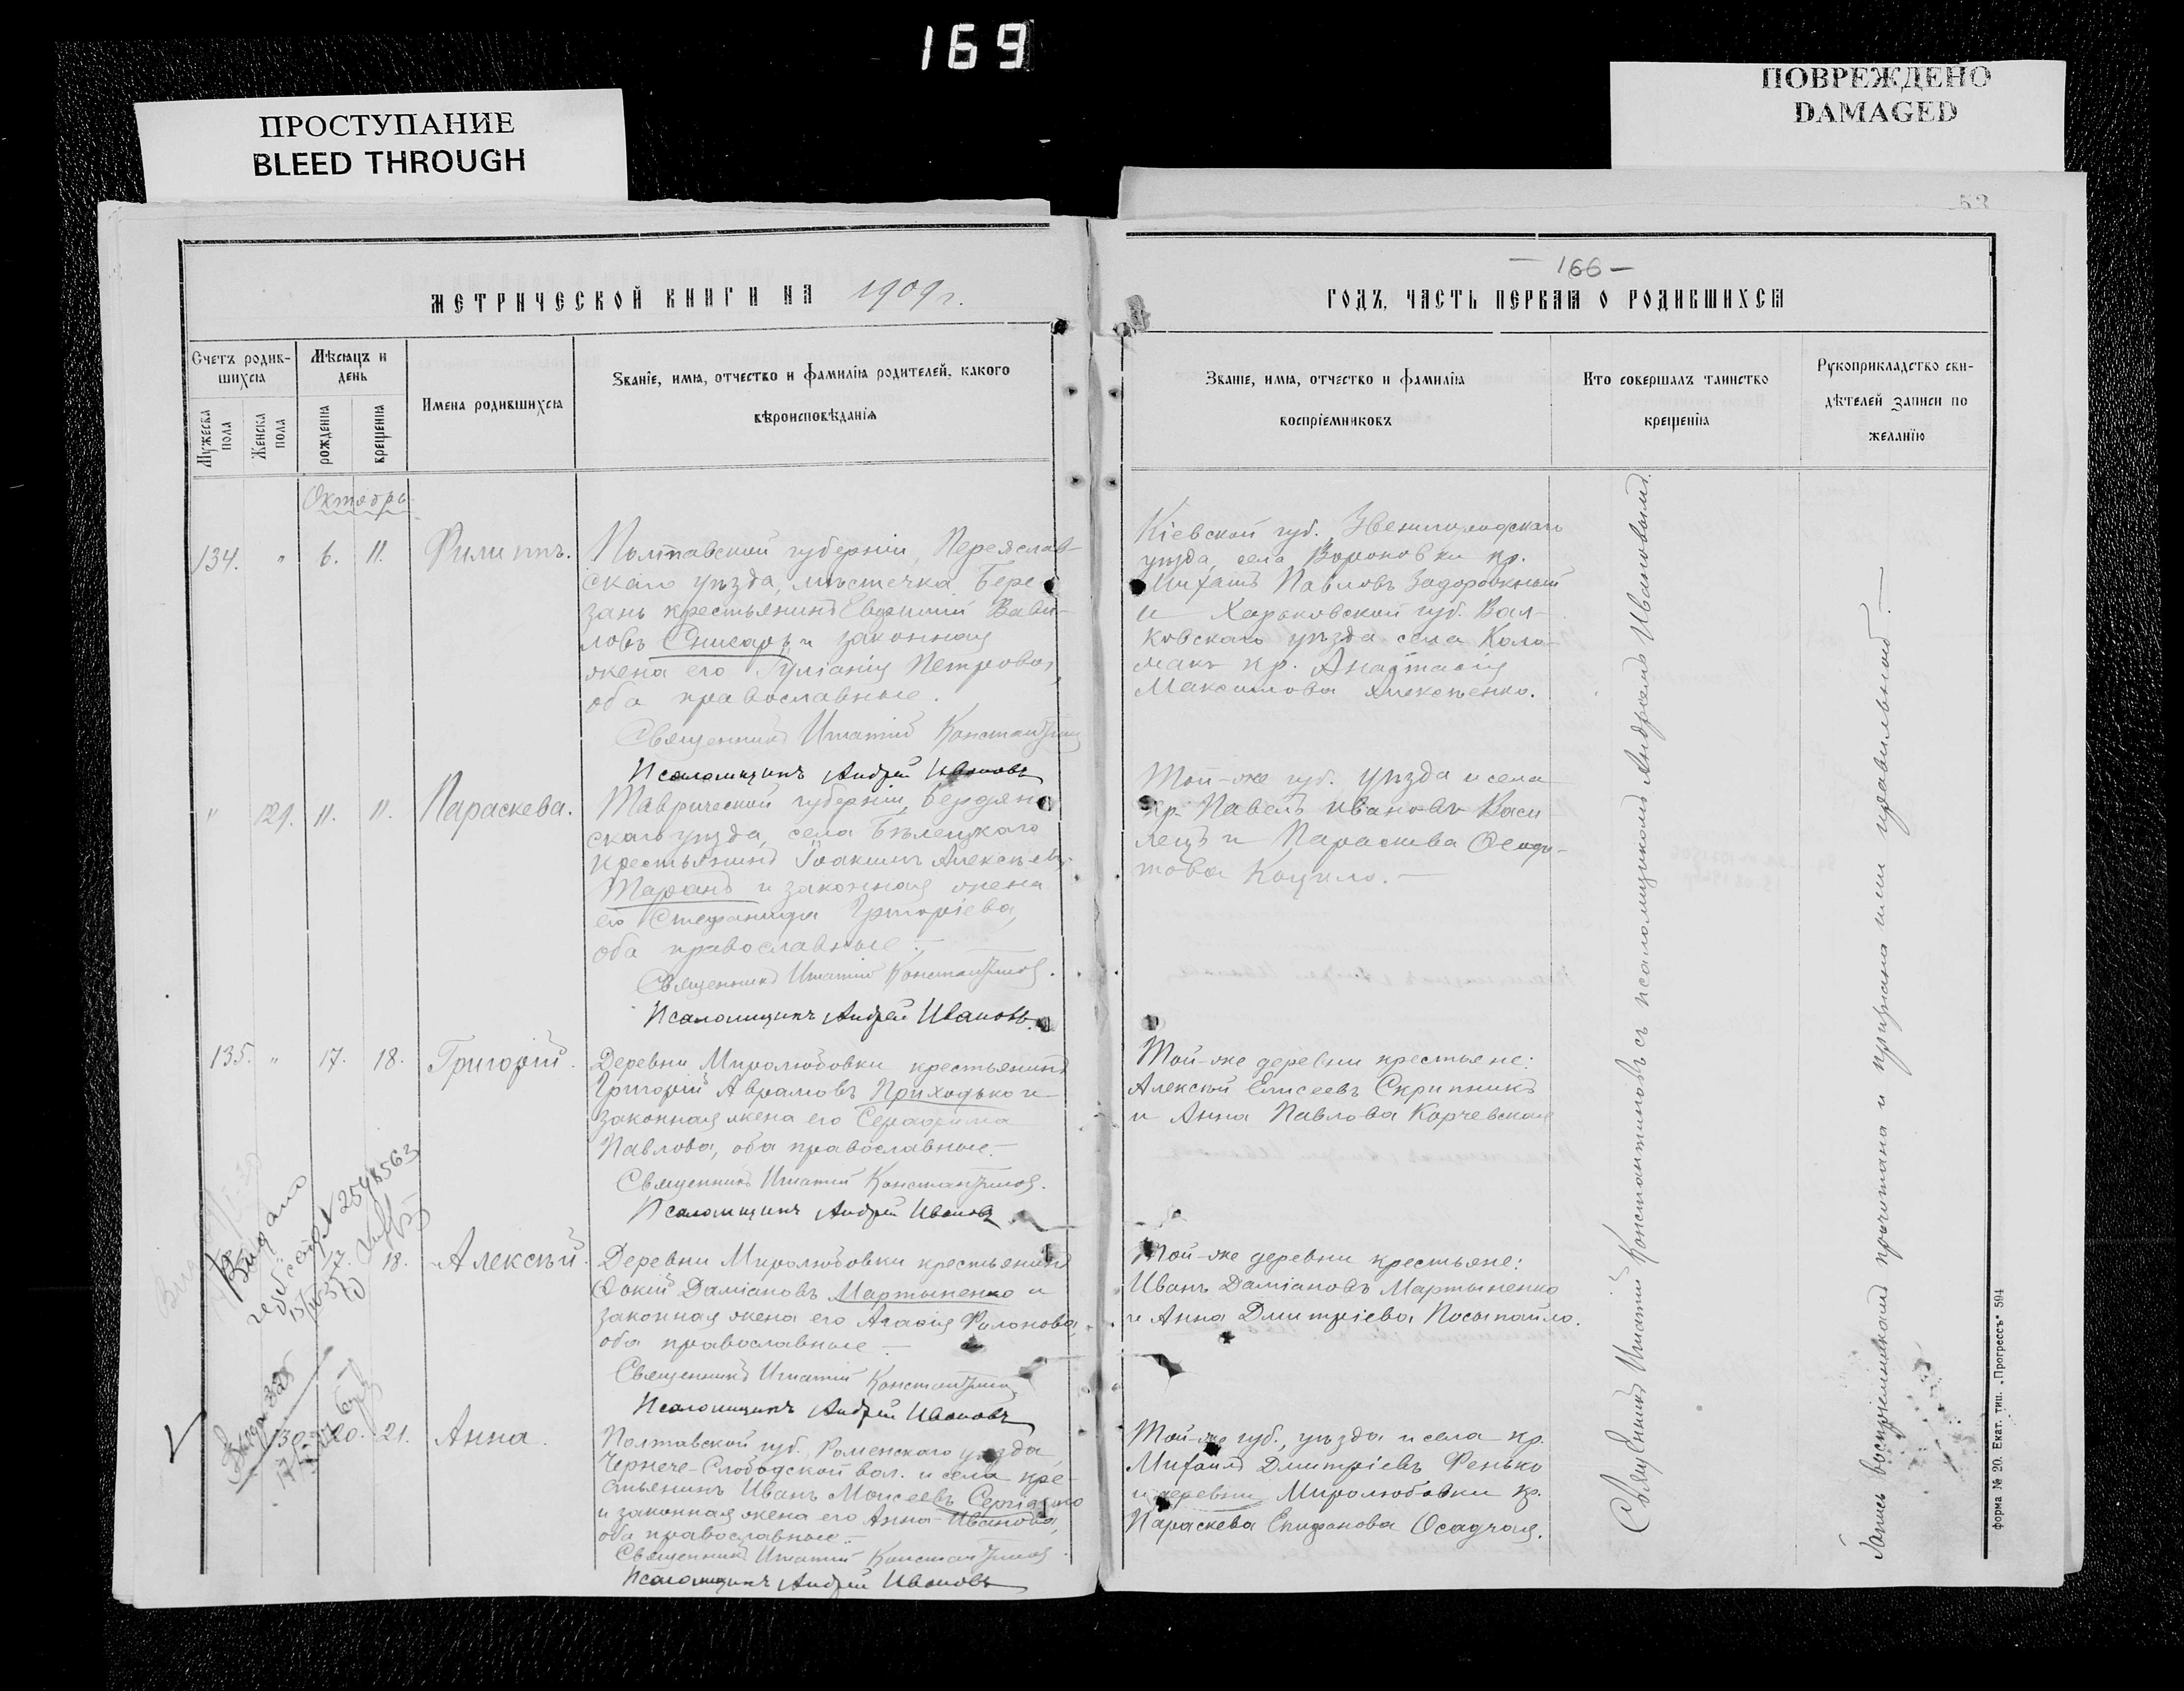 169
ПРОСТУПАНИЕ
BLEED THROUGH
ПОВРЕЖДЕНО
DAMAGED
53
МЕТРИЧЕСКОЙ КНИГИ НА 1909 г.
Счетъ родившихся
Мужеска пола
Женска пола
Мѣсяцъ и день
рожденія
крещенія
Имена родившихся
Званіе, имя, отчество и фамилія родителей, какого
вѣроисповѣданія
Октябрь
134. " 6. 11. Филиппъ.
Полтавской губерніи, Переяслав-
скаго уѣзда, мѣстечка Бере-
зань крестьянинъ Евфимій Вави-
ловъ Снисарь и законная
жена его Іуліанія Петрова,
оба православные.
Священникъ Игнатій Константиновъ
Псаломщикъ Андрей Ивановъ
" 129. 11. 11. Параскева.
Таврической губерніи, Бердян-
скаго уѣзда, села Бѣлецкаго
крестьянинъ Іоакимъ Алексѣевъ
Таранъ и законная жена
его Стефанида Григоріева,
оба православные.
Священникъ Игнатій Константиновъ.
Псаломщикъ Андрей Ивановъ.
135. " 17. 18. Григорій.
Деревни Миролюбовки крестьянинъ
Григорій Аврамовъ Приходько и
законная жена его Серафима
Павлова, оба православные.
Священникъ Игнатій Константиновъ.
Псаломщикъ Андрей Ивановъ
Видано
2598563
18. Алексѣй.
Деревни Миролюбовки крестьянинъ
Фокій Даміановъ Мартыненко и
законная жена его Агафія Филонова,
оба православные.
Священникъ Игнатій Константиновъ
Псаломщикъ Андрей Ивановъ
130. 20. 21. Анна.
Полтавской губ., Роменскаго уѣзда,
Чернече-Слободской вол. и села кре-
стьянинъ Иванъ Моисеевъ Сергіенко
и законная жена его Анна Иванова,
оба православные.
Священникъ Игнатій Константиновъ.
Псаломщикъ Андрей Ивановъ
— 166 —
ГОДЪ, ЧАСТЬ ПЕРВАЯ О РОДИВШИХСЯ
Званіе, имя, отчество и фамилія
воспріемниковъ
Кто совершалъ таинство
крещенія
Рукоприкладство сви-
дѣтелей записи по
желанію
Кіевской губ., Звенигородскаго
уѣзда, села Вороновки кр.
Михаилъ Павловъ Задорожный
и Харьковской губ. Вал-
ковскаго уѣзда села Коло-
макъ кр. Анастасія
Максимова Алексѣенко.
Той-же губ. уѣзда и села
кр. Павелъ Ивановъ Васи-
лецъ и Параскева Осифо-
това Кацило.
Той-же деревни крестьяне:
Алексѣй Елисеевъ Скрипникъ
и Анна Павлова Корчевская
Той-же деревни крестьяне:
Иванъ Даміановъ Мартыненко
и Анна Дмитріева Посыпайло.
Той-же губ., уѣзда и села кр.
Михаилъ Дмитріевъ Фенько
и деревни Миролюбовки кр.
Параскева Епифанова Осадчая.
Священникъ Игнатій Константиновъ съ псаломщикомъ Андреемъ Ивановымъ.
Запись воспріемникамъ прочитана и признана ими правильной.
форма № 20. Екат. тип. „Прогрессъ" 594